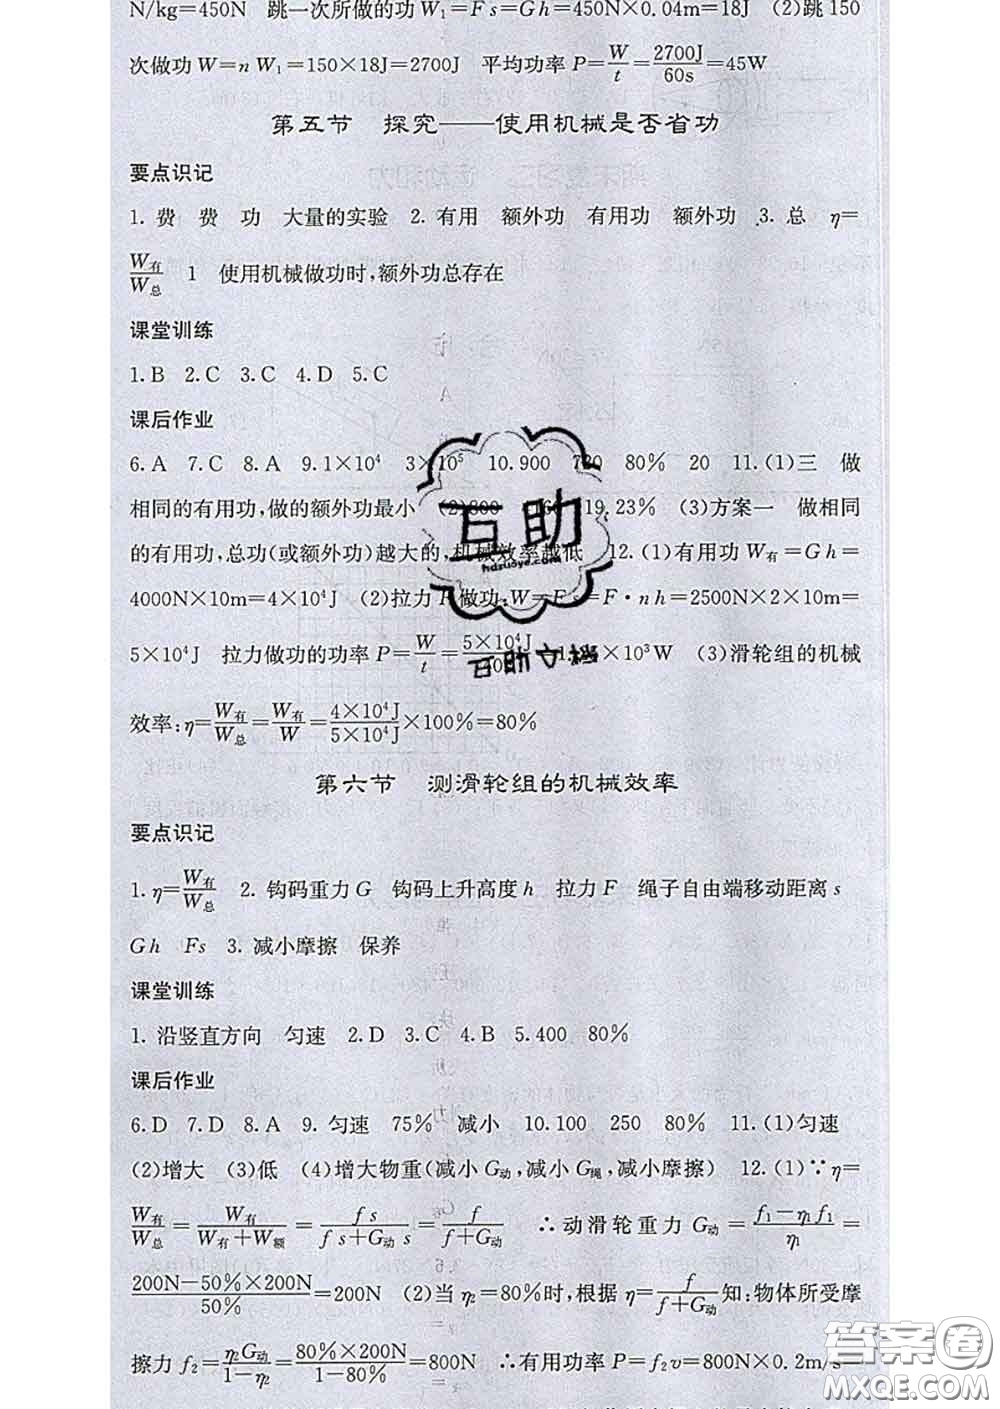 N/kg=450N 跳一次所做的功 W₁=Fs=Gh=450N×0.04m=18J (2)跳150
次做功 W=nW₁=150×18J=2700J 平均功率 P=W/t=2700J/60s=45W
第五节 探究——使用机械是否省功
要点识记
1. 费 费 功 大量的实验 2. 有用 额外功 有用功 额外功 3. 总 η=
W有/W总 1 使用机械做功时,额外功总存在
课堂训练
1.B 2.C 3.C 4.D 5.C
课后作业
6.A 7.C 8.A 9.1×10⁴ 3×10⁵ 10.900 720 80% 20 11.(1)三 做
相同的有用功,做的额外功最小 (2)600 19.23% (3)方案一 做相同
的有用功,总功(或额外功)越大的,机械效率越低 12.(1)有用功 W有=Gh=
4000N×10m=4×10⁴J (2)拉力 F 做功:W=Fs=F·nh=2500N×2×10m=
5×10⁴J 拉力做功的功率 P=W/t=5×10⁴J ×10³W (3)滑轮组的机械
效率:η=W有/W总=W有/W=4×10⁴J/5×10⁴J×100%=80%
第六节 测滑轮组的机械效率
要点识记
1. η=W有/W总 2. 钩码重力 G 钩码上升高度 h 拉力 F 绳子自由端移动距离 s
Gh Fs 3. 减小摩擦 保养
课堂训练
1. 沿竖直方向 匀速 2.D 3.C 4.B 5.400 80%
课后作业
6.D 7.D 8.A 9. 匀速 75% 减小 10.100 250 80% 11.(1)匀速
(2)增大 (3)低 (4)增大物重(减小 G动,减小 G绳,减小摩擦) 12.(1)∵η=
W有/W总=W有/(W有+W额)=fs/(fs+G动s)=f/(f+G动) ∴动滑轮重力 G动=(f₁-η₁f₁)/η₁=
(200N-50%×200N)/50%=200N (2)当 η₂=80%时,根据 η=f/(f+G动)知:物体所受摩
擦力 f₂=η₂G动/(1-η₂)=80%×200N/(1-80%)=800N ∴有用功率 P=f₂v=800N×0.2m/s=
互助
hdzuoye.com
互助文档
答案圈
MXQE.COM